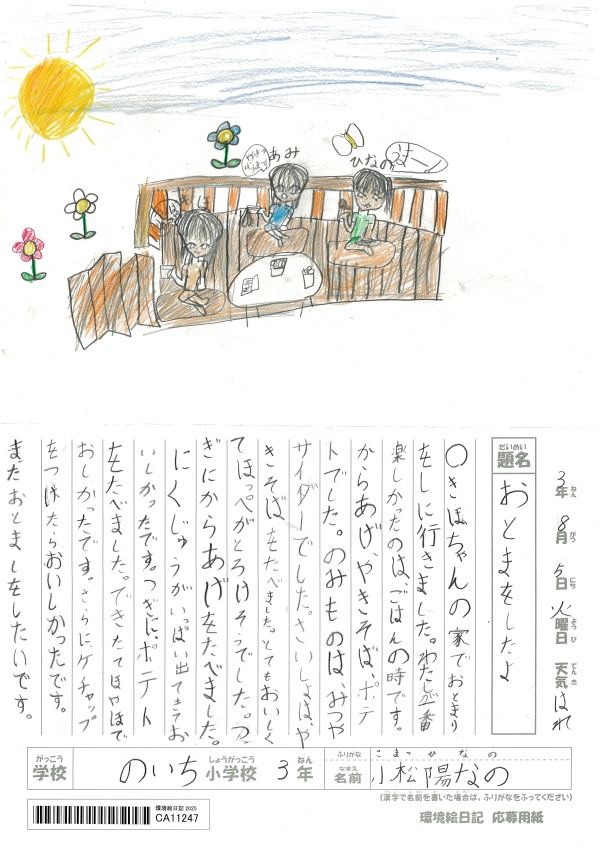 あみ
ひなの
きほ
3年 8月 5日 火曜日 天気 はれ
ねん がつ にち ようび てんき
だいめい
題名
おとまをしたよ
〇きほちゃんの家でおとまり
をしに行きました。わたしが一番
楽しかったのは、ごはんの時です。
からあげ、やきそば、ポテ
トでした。のみものは、みつや
サイダーでした。さいしょは、や
きそばをたべました。とてもおいしく
てほっぺがとろけそうでした。つ
ぎにからあげをたべました。
にくじゅうがいっぱい出てきてお
いしかったです。つぎに、ポテト
をたべました。できたてほやほで
おしかったです。さらに、ケチャップ
をつけたらおいしかったです。
またおとましをしたいです。
がっこう
学校
のいち
しょうがっこう
小学校
3
ねん
年
ふりがな
こまつ ひなの
なまえ
名前
小松陽なの
(漢字で名前を書いた場合は、ふりがなをふってください)
環境絵日記 応募用紙
環境絵日記 2025
CA11247